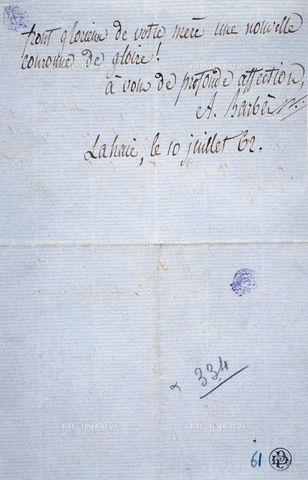 front glorieux de votre mère une nouvelle
couronne de gloire!
à vous de profonde affection,
A. Barbès
Lahaie, le 10 juillet 62.
334
ALINARI
61